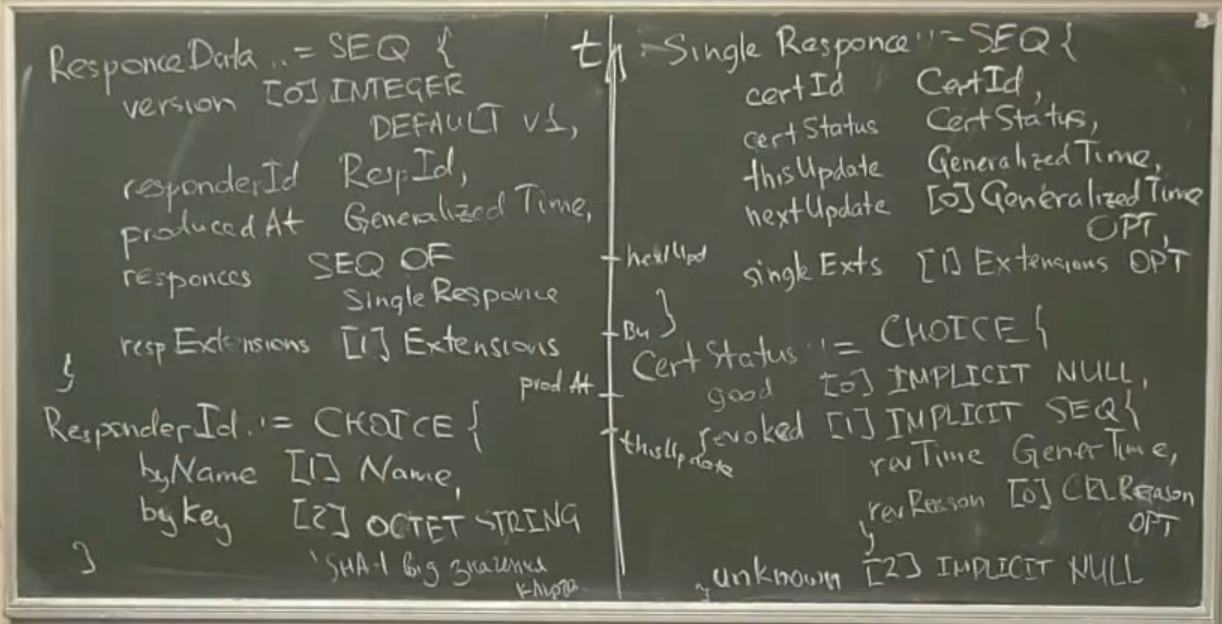 ResponceData ::= SEQ {
version [0] INTEGER
DEFAULT v1,
responderId RespId,
producedAt Generalized Time,
responces SEQ OF
Single Responce
respExtensions [1] Extensions
}
ResponderId ::= CHOICE {
byName [1] Name,
byKey [2] OCTET STRING
SHA-1 від значення
ключа
}
t
nextUpd
prodAt
thisUpdate
Single Responce ::= SEQ {
certId CertId,
certStatus CertStatus,
thisUpdate Generalized Time,
nextUpdate [0] Generalized Time
OPT,
singleExts [1] Extensions OPT
}
CertStatus ::= CHOICE {
good [0] IMPLICIT NULL,
revoked [1] IMPLICIT SEQ {
revTime GenerTime,
revReason [0] CRLReason
OPT
}
unknown [2] IMPLICIT NULL
}